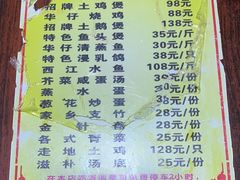 招牌土鸡煲 98元
华仔烧鸡 88元
招牌土鹅煲 138元
特色鱼头煲 35元/斤
华仔清蒸鱼 30元/斤
特色漫乳鸽 38元/只
西江水鱼 108元/斤
芥菜咸蛋汤 25元/份
蒸水蛋 20元/份
葱花炒蛋 28元/份
家乡支竹 25元/份
金针 25元/份
各式青 25元/份
走地鸡汤 128元/只
滋补汤 25元/份
在本店 停车2小时